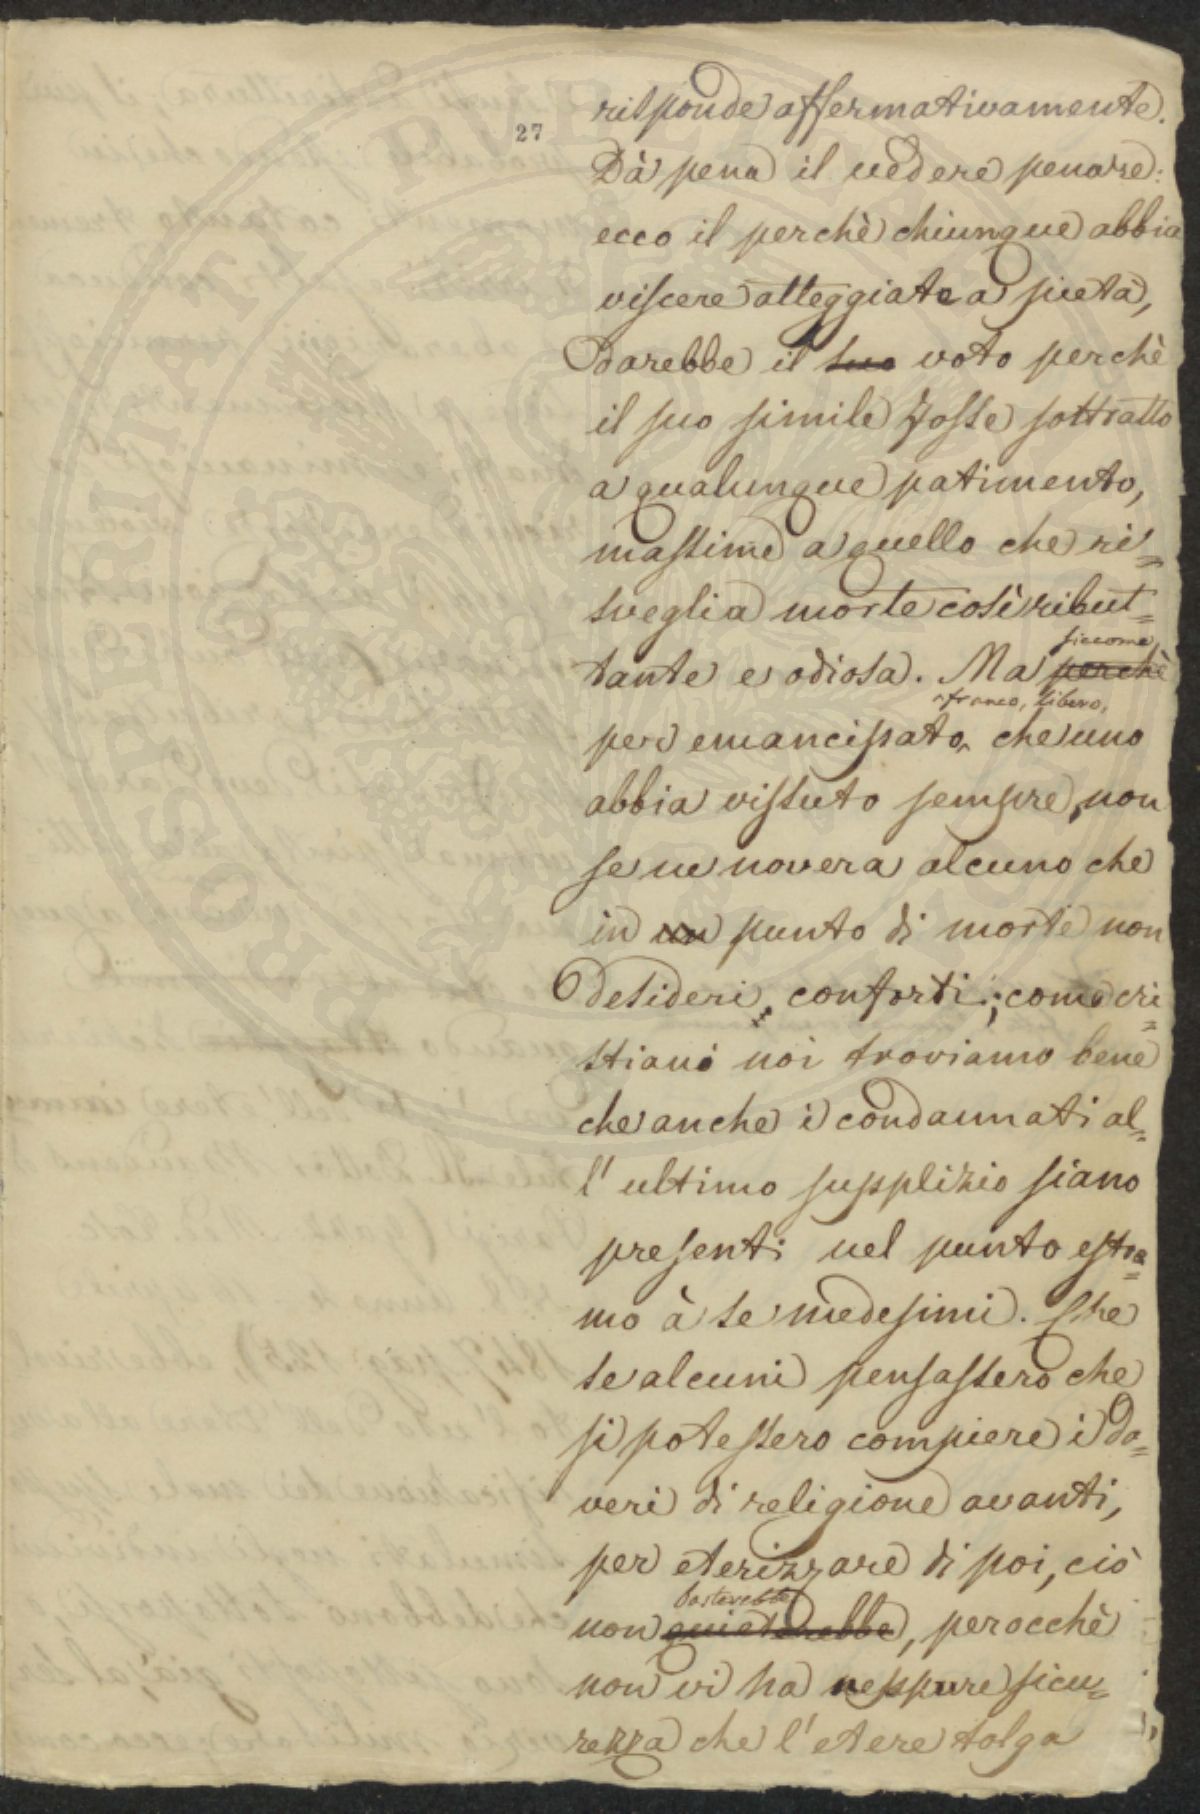 27
risponde affermativamente.
Dà pena il vedere penare:
ecco il perchè chiunque abbia
viscere atteggiate a pietà,
darebbe il suo voto perchè
il suo simile fosse sottratto
a qualunque patimento,
massime a quello che ri=
sveglia morte così ribut=
siccome
tante e odiosa. Ma perchè
franco, libero,
per emancipato, che uno
abbia vissuto sempre, non
se ne novera alcuno che
in un punto di morte non
desideri conforti; come cri=
stiani noi troviamo bene
che anche i condannati al=
l'ultimo supplizio siano
presenti nel punto estre=
mo à se medesimi. Che
se alcuni pensassero che
si potessero compiere i do=
veri di religione avanti,
per eterizzare di poi, ciò
basterebbe
non quieterebbe, perocchè
non vi ha neppure sicu=
rezza che l'etere tolga